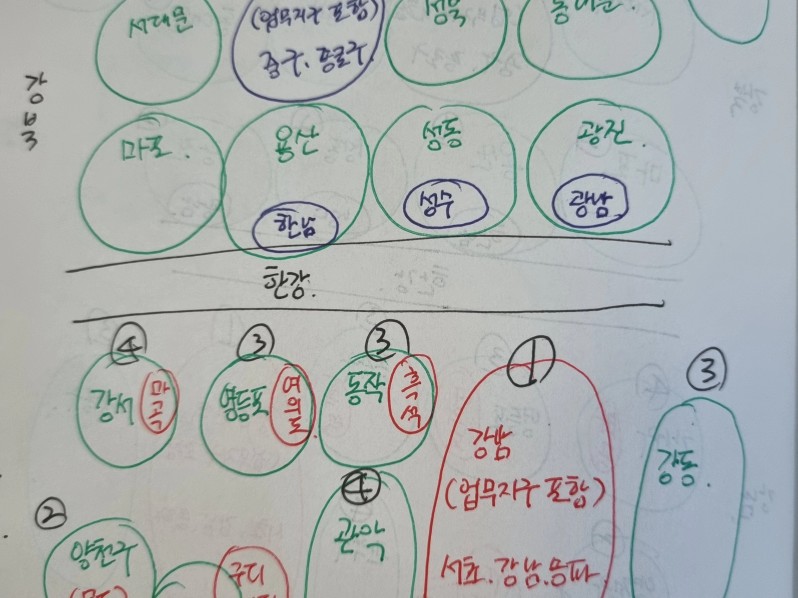 서대문
(업무지구 포함)
중구. 종로구
성북
동대문.
강북
마포.
용산
한남
성동
성수
광진.
광남
한강.
④
강서
마곡
③
영등포
여의도
③
동작
흑석
①
강남
(업무지구 포함)
서초.강남.송파
③
강동.
②
양천구
구디
④
관악